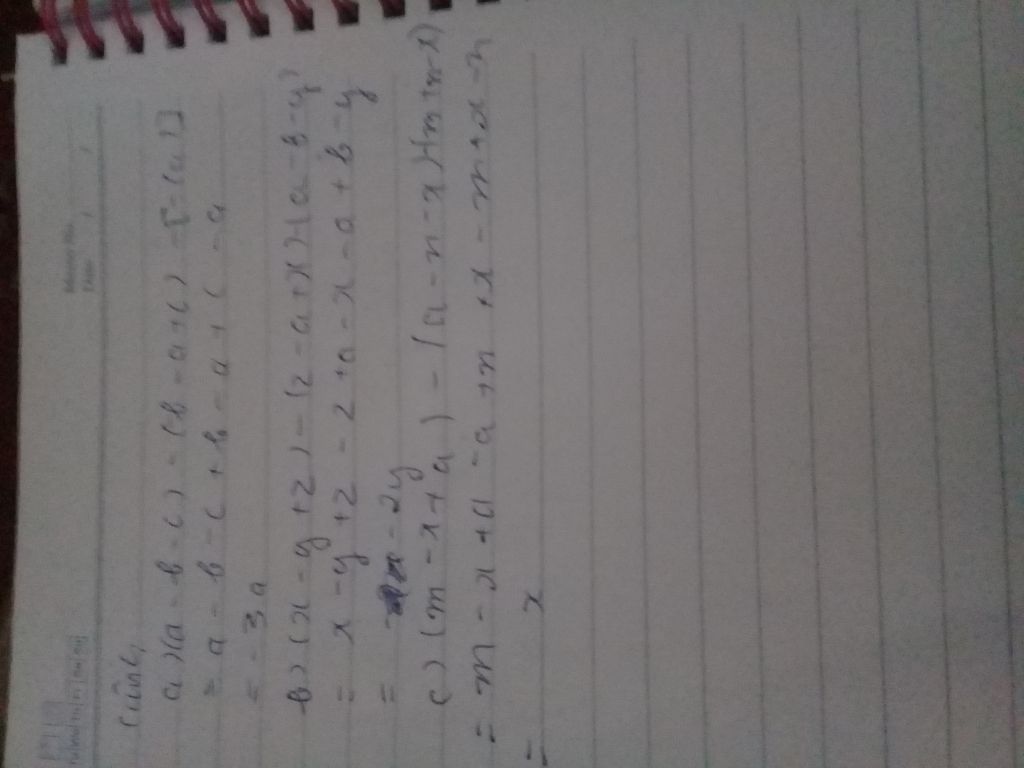 a) (a - b - c) - (b - a + c) - [-(a)]
= a - b - c + b - a + c - a
= - 3a
b) (x - y + z) - (z - a + x) - (a - b - y)
= x - y + z - z + a - x - a + b - y
= - 2y
c) (m - x + a) - (a - n - x) - (m + n - x)
= m - x + a - a + n + x - m + x - n
= x